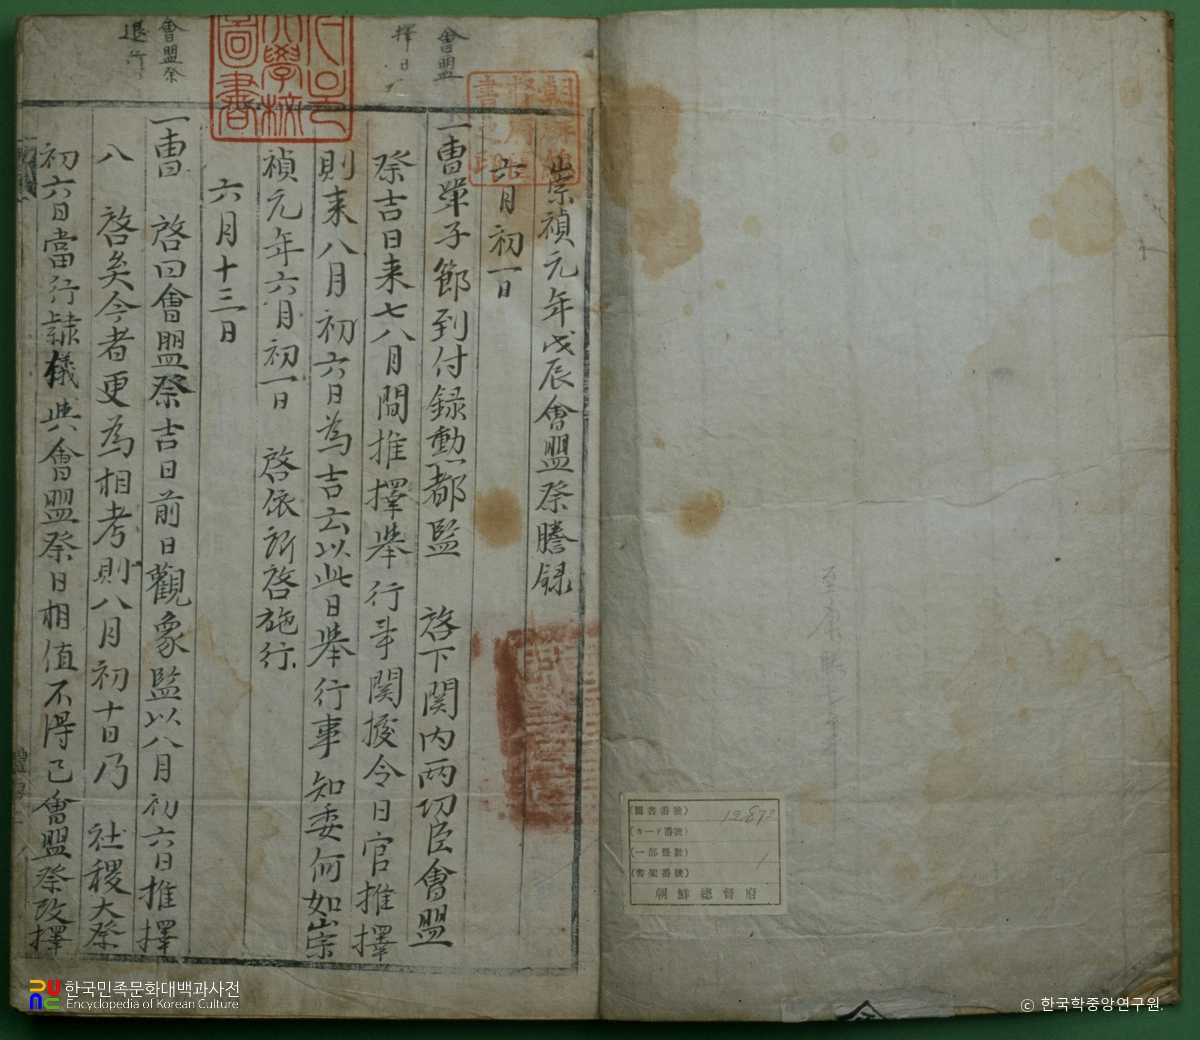 崇禎元年戊辰會盟祭謄錄
六月初一日
會盟
一曹單子節到付錄勳都監 啓下關內兩功臣會盟
擇日
祭吉日来七八月間推擇擧行事關據令日官推擇
則来八月初六日為吉云以此日擧行事知委何如崇
禎元年六月初一日 啓依所啓施行
六月十三日
會盟祭
退行
一曹 啓曰會盟祭吉日前日觀象監以八月初六日推擇
入 啓矣今者更為相考則八月初十日乃 社稷大祭
初六日當行隷儀與會盟祭日相值不得已會盟祭改擇
圖書番號
12892
カード番號
一部冊數
1
書架番號
朝鮮總督府
朝鮮總督府圖書之印
大學校圖書
한국민족문화대백과사전
Encyclopedia of Korean Culture
ⓒ 한국학중앙연구원.